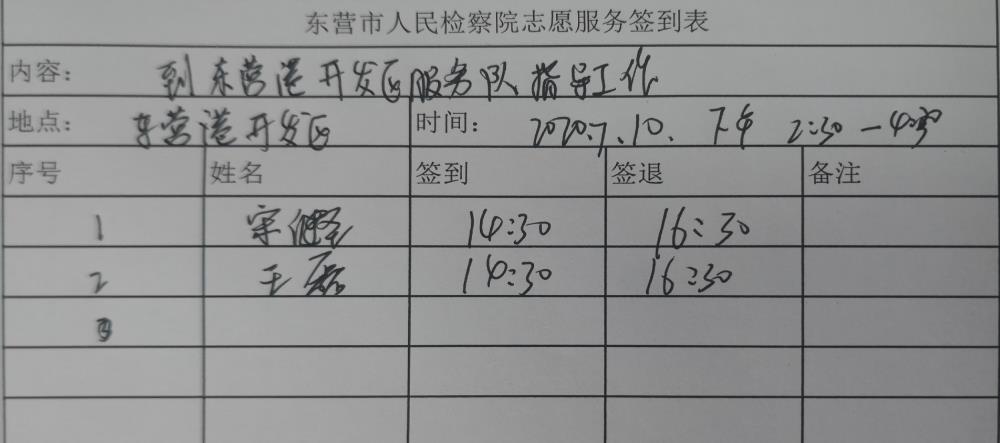 东营市人民检察院志愿服务签到表
内容: 到东营港开发区服务队指导工作
地点: 东营港开发区 时间: 2020.7.10. 下午 2:30—4:30
序号 姓名 签到 签退 备注
1 宋健 14:30 16:30
2 王磊 14:30 16:30
3